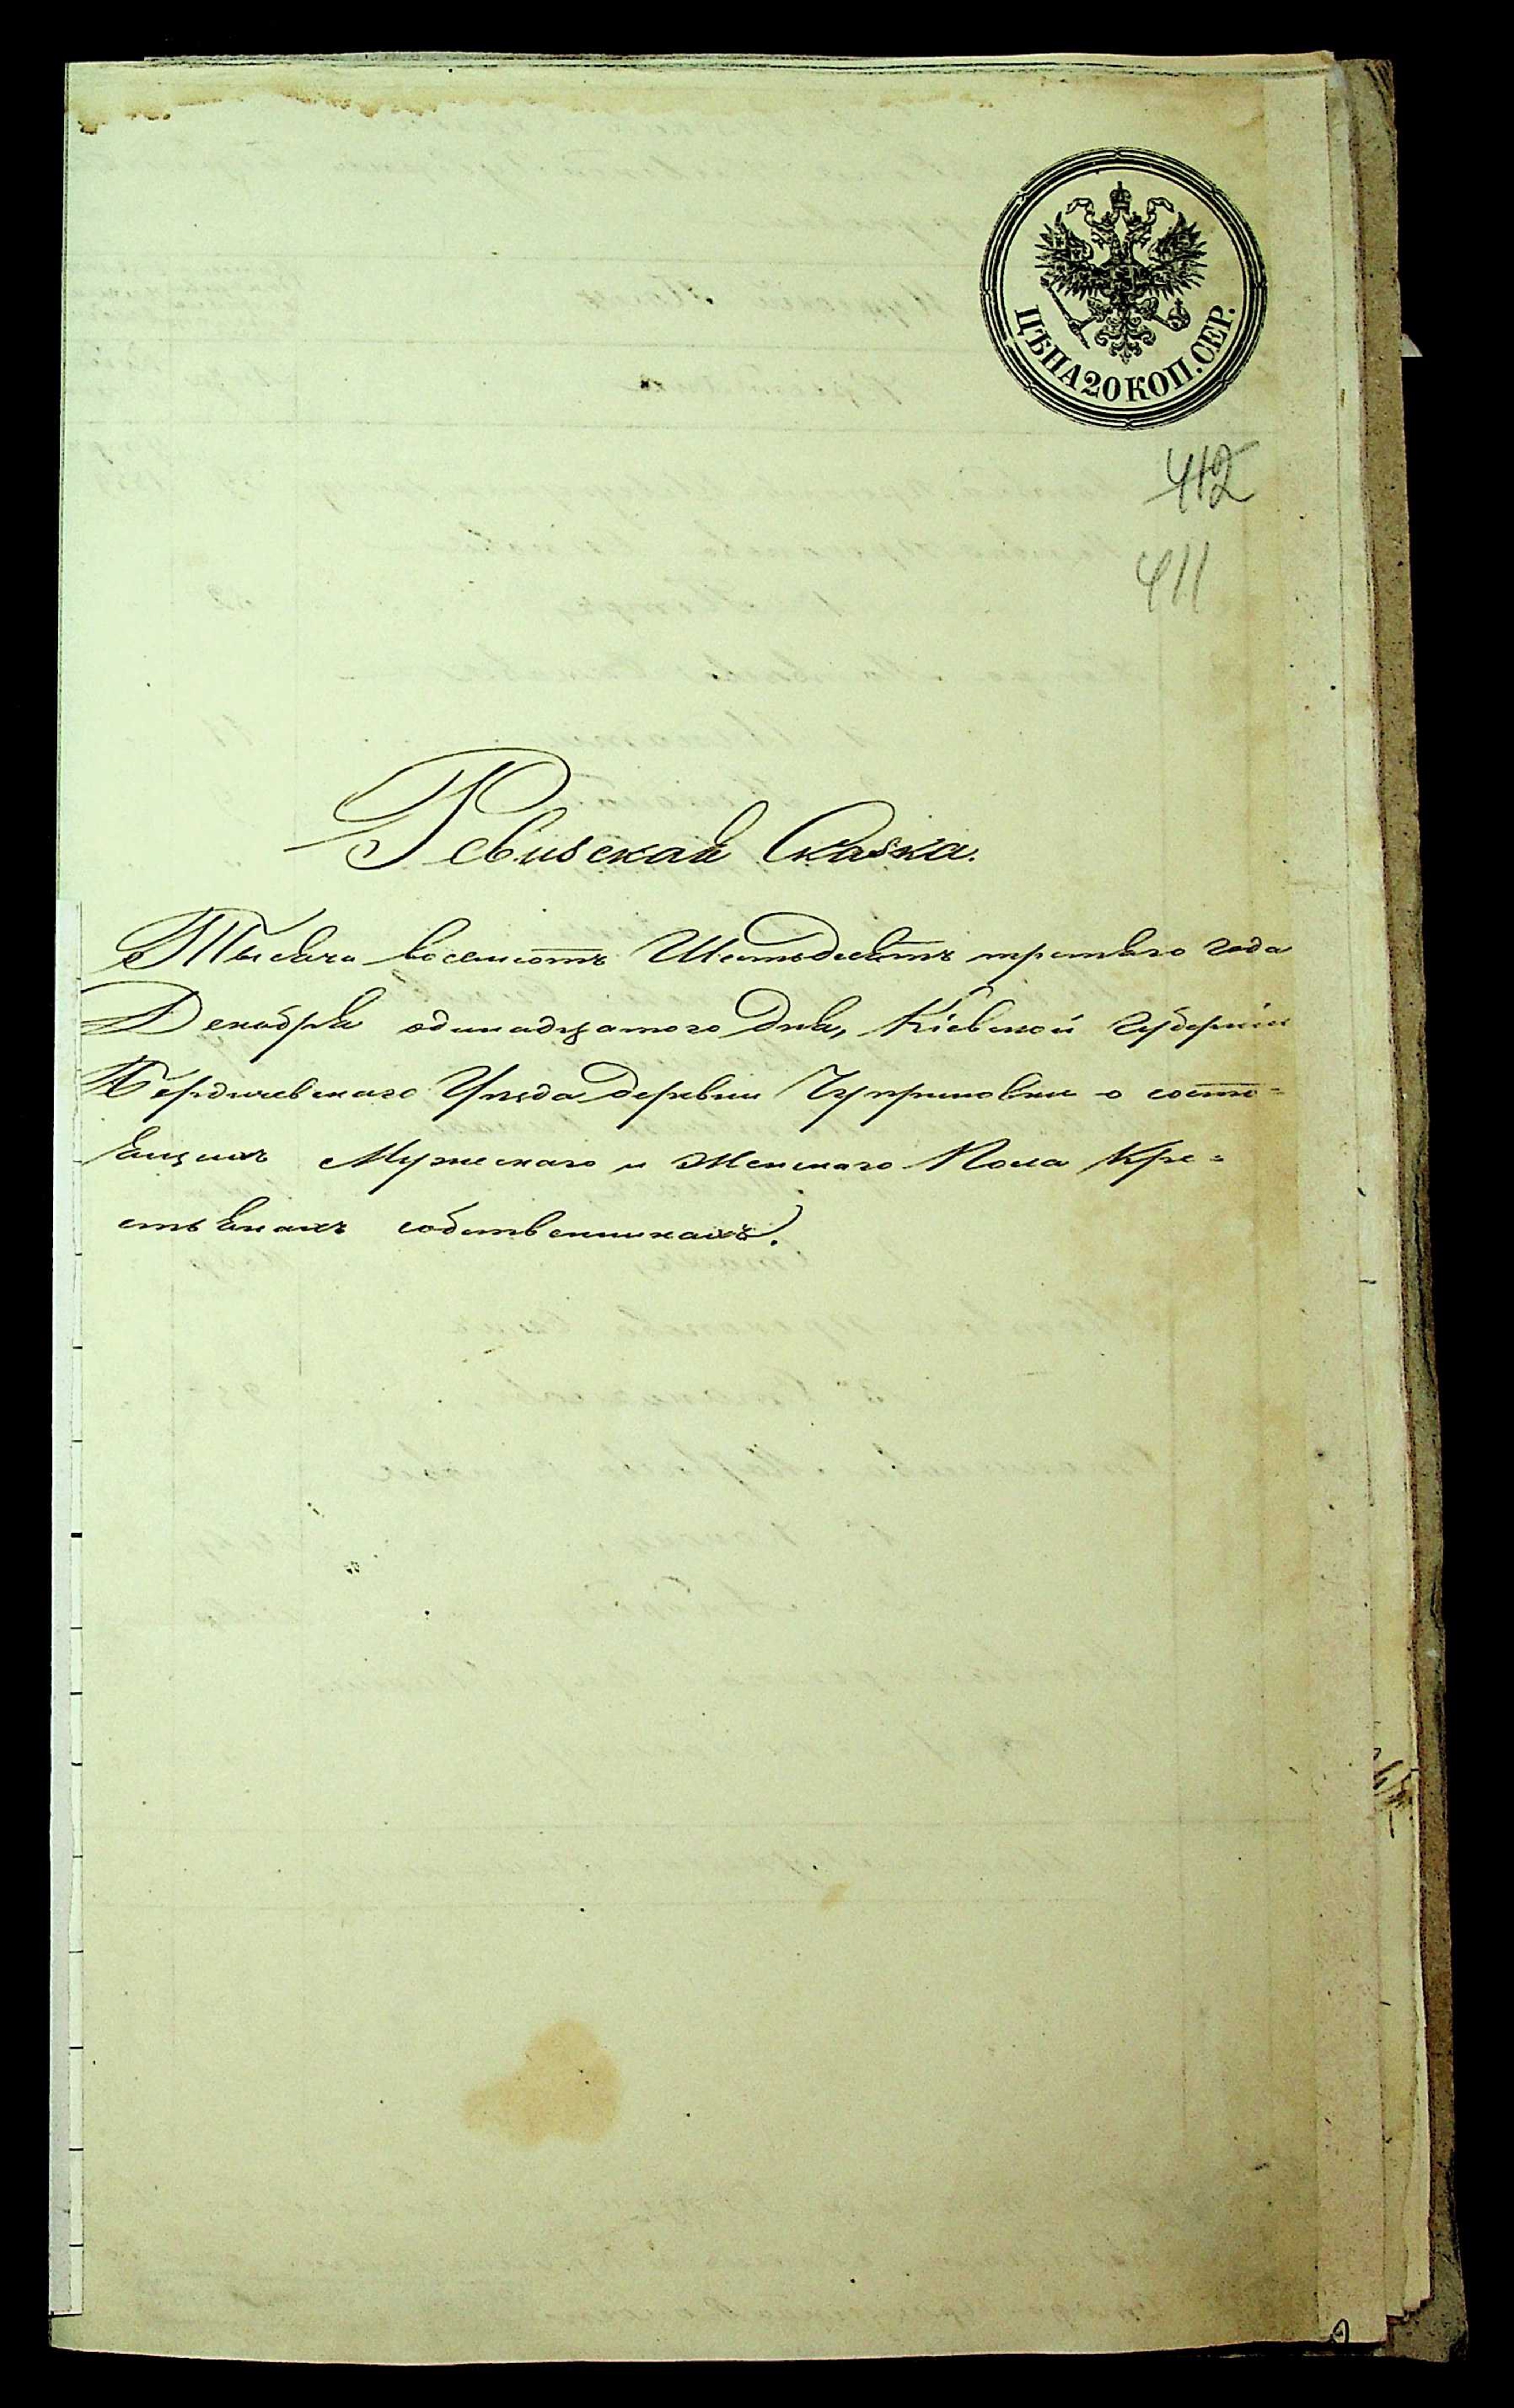 ЦѢНА 20 КОП. СЕР.
412
411
Ревизская Сказка.
Тысяча восемсотъ Шестьдесятъ третьяго года
Декабря одинадцатого дня, Кіевской Губерніи
Бердичевскаго Уѣзда деревни Чуприновки о состо=
ящихъ Мужескаго и Женскаго Пола Кре=
стьянахъ собственникахъ.